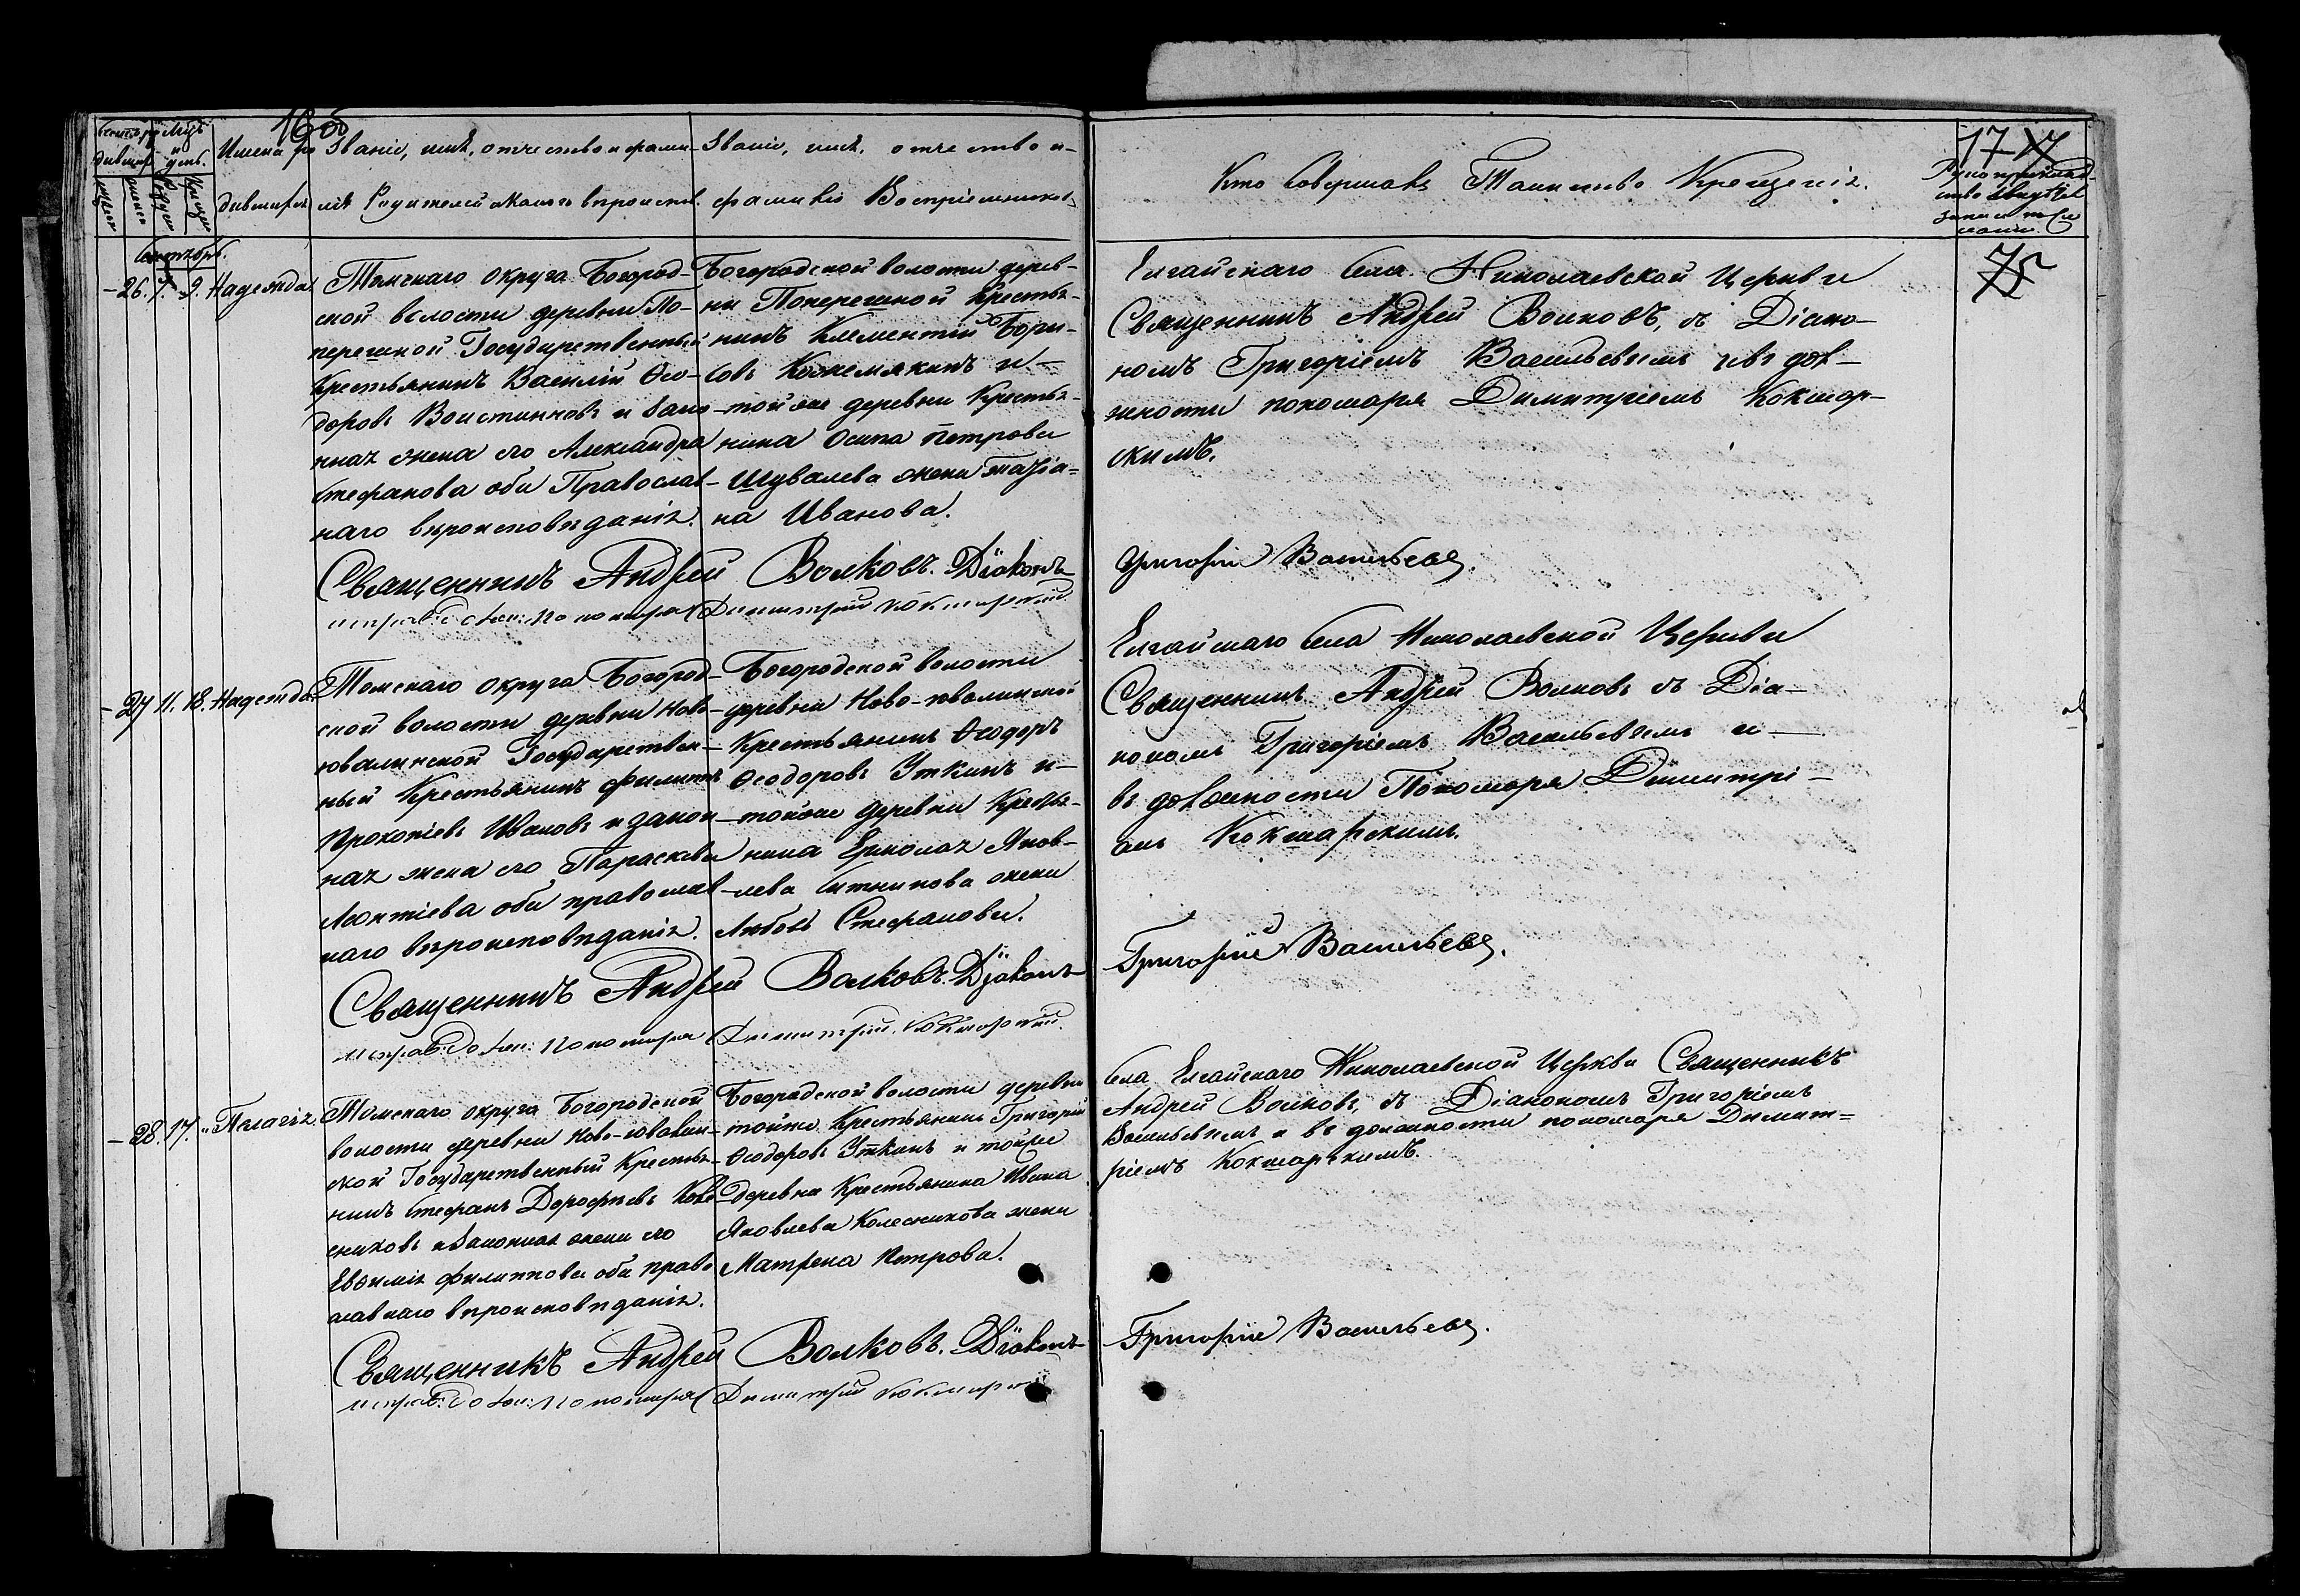 16 об
17
Имена ро Званіе, имя, отчество и фами-
дившихся лія Родителей и какого вѣроиспов.
Званіе, имя, отчество и
фамилія Воспріемниковъ
Кто совершалъ Таинство Крещенія.
Рукоприклад-
ство свидѣтел
записи
Сентябрь.
26. 7. 9. Надежда
Томскаго округа Богород-
ской волости деревни По-
перешной Государственный
Крестьянинъ Василій Ѳео-
доровъ Воистиновъ и закон-
ная жена его Александра
Стефанова оба Православ-
наго вѣроисповѣданія.
Богородской волости дерев-
ни Поперешной Крестья-
нинъ Клементій Бори-
совъ Кожемякинъ и
той же деревни Крестья-
нина Осипа Петрова
Шувалева жена Татіа-
на Иванова.
Елгайскаго села Николаевской Церкви
Священникъ Андрей Волковъ, съ Діако-
номъ Григоріемъ Васильевымъ и въ дол-
жности пономаря Димитріемъ Кокшар-
скимъ.
75
Священникъ Андрей Волковъ. Діаконъ
Григорій Васильевъ.
исправ: долж: Пономаря Димитрій Кокшарскій.
27 11. 18. Надежда
Томскаго округа Богород-
ской волости деревни Ново-
ювалинской Государствен-
ный Крестьянинъ Филиппъ
Прокопіевъ Ивановъ и закон-
ная жена его Параскева
Леонтіева оба православ-
наго вѣроисповѣданія.
Богородской волости
деревни Ново-ювалинской
Крестьянинъ Ѳеодоръ
Ѳеодоровъ Уткинъ и
той же деревни Крестья-
нина Ермолая Яков-
лева Ситникова жена
Любовь Стефанова.
Елгайскаго села Николаевской Церкви
Священникъ Андрей Волковъ съ Діа-
кономъ Григоріемъ Васильевымъ и
въ должности Пономаря Димитрі-
емъ Кокшарскимъ.
Священникъ Андрей Волковъ. Діаконъ
Григорій Васильевъ.
исправ: долж: Пономаря Димитрій Кокшарскій.
28. 17. " Пелагія
Томскаго округа Богородской
волости деревни Ново-ювалин-
ской Государственный Крестья-
нинъ Стефанъ Дорофѣевъ Коле
сниковъ и законная жена его
Евѳимія Филиппова оба право
славнаго вѣроисповѣданія.
Богородской волости деревни
тойже Крестьянинъ Григорій
Ѳеодоровъ Уткинъ и тойже
деревни Крестьянина Ивана
Яковлева Колесникова жена
Матрена Петрова.
Села Елгайскаго Николаевской Церкви Священникъ
Андрей Волковъ, съ Діакономъ Григоріемъ
Васильевымъ и въ должности пономаря Димит-
ріемъ Кокшарскимъ.
Священникъ Андрей Волковъ. Діаконъ
Григорій Васильевъ.
исправ: долж: Пономаря Димитрій Кокшарскій